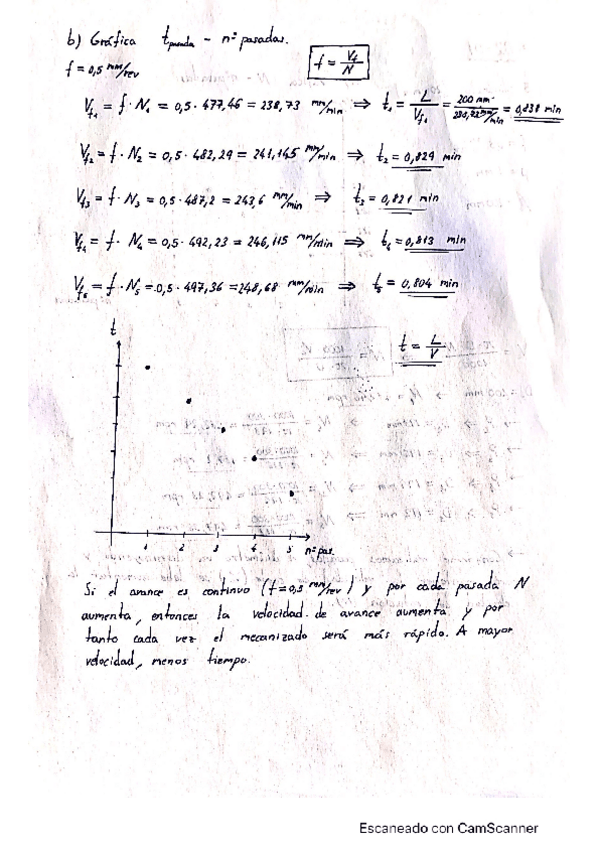 b) Gráfica t pasada - nº pasadas.
f = 0,5 mm/rev
f = Vf/N
Vf1 = f · N1 = 0,5 · 477,46 = 238,73 mm/min ⇒ t1 = L/Vf1 = 200 mm / 238,73 mm/min = 0,838 min
Vf2 = f · N2 = 0,5 · 482,29 = 241,145 mm/min ⇒ t2 = 0,829 min
Vf3 = f · N3 = 0,5 · 487,2 = 243,6 mm/min ⇒ t3 = 0,821 min
Vf4 = f · N4 = 0,5 · 492,23 = 246,115 mm/min ⇒ t4 = 0,813 min
Vf5 = f · N5 = 0,5 · 497,36 = 248,68 mm/min ⇒ t5 = 0,804 min
t
t = L/V
1 2 3 4 5 nº pas.
Si el avance es continuo (f = 0,5 mm/rev) y por cada pasada N
aumenta, entonces la velocidad de avance aumenta y por
tanto cada vez el mecanizado será más rápido. A mayor
velocidad, menos tiempo.
Escaneado con CamScanner